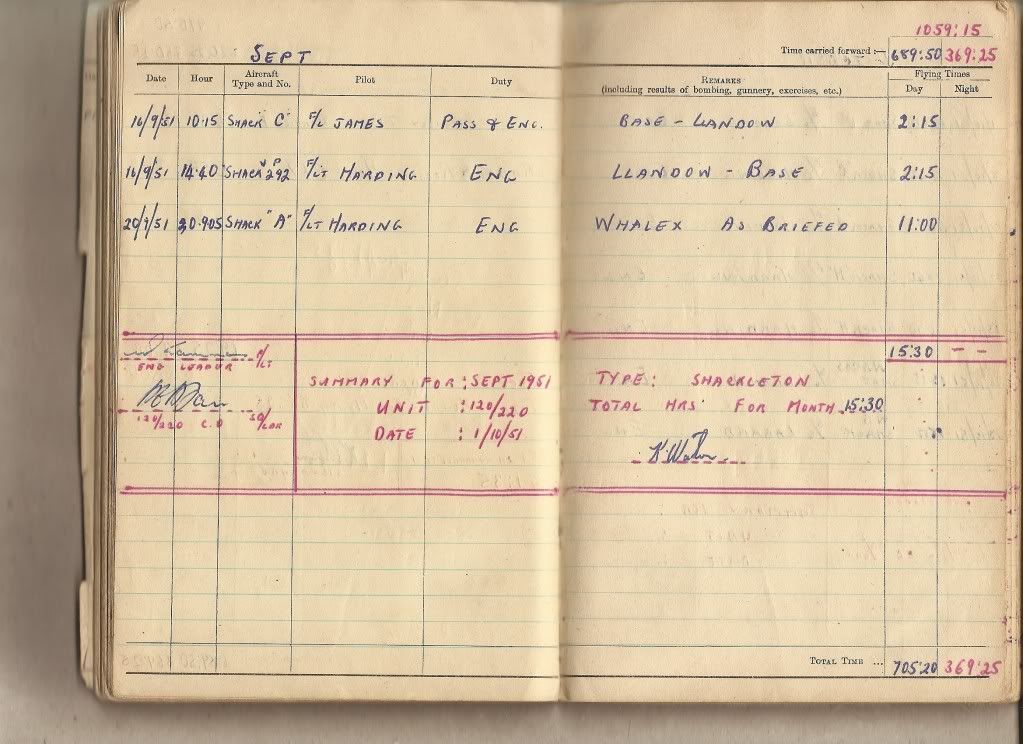 1059:15
SEPT
Time carried forward :— 689:50 369:25
Date Hour Aircraft Type and No. Pilot Duty REMARKS (including results of bombing, gunnery, exercises, etc.) Flying Times Day Night
16/9/51 10.15 SHACK "C" F/L JAMES PASS & ENG. BASE - LLANDOW 2:15
16/9/51 14.40 SHACK VP 292 F/LT HARDING ENG LLANDOW - BASE 2:15
20/9/51 SHACK "A" F/LT HARDING ENG WHALEX AS BRIEFED 11:00
15:30 - -
F/LT
ENG LEADER
SUMMARY FOR: SEPT 1951 TYPE: SHACKLETON
UNIT : 120/220 TOTAL HRS FOR MONTH 15:30
120/220 C.O SQ/LDR
DATE : 1/10/51
TOTAL TIME ... 705:20 369:25